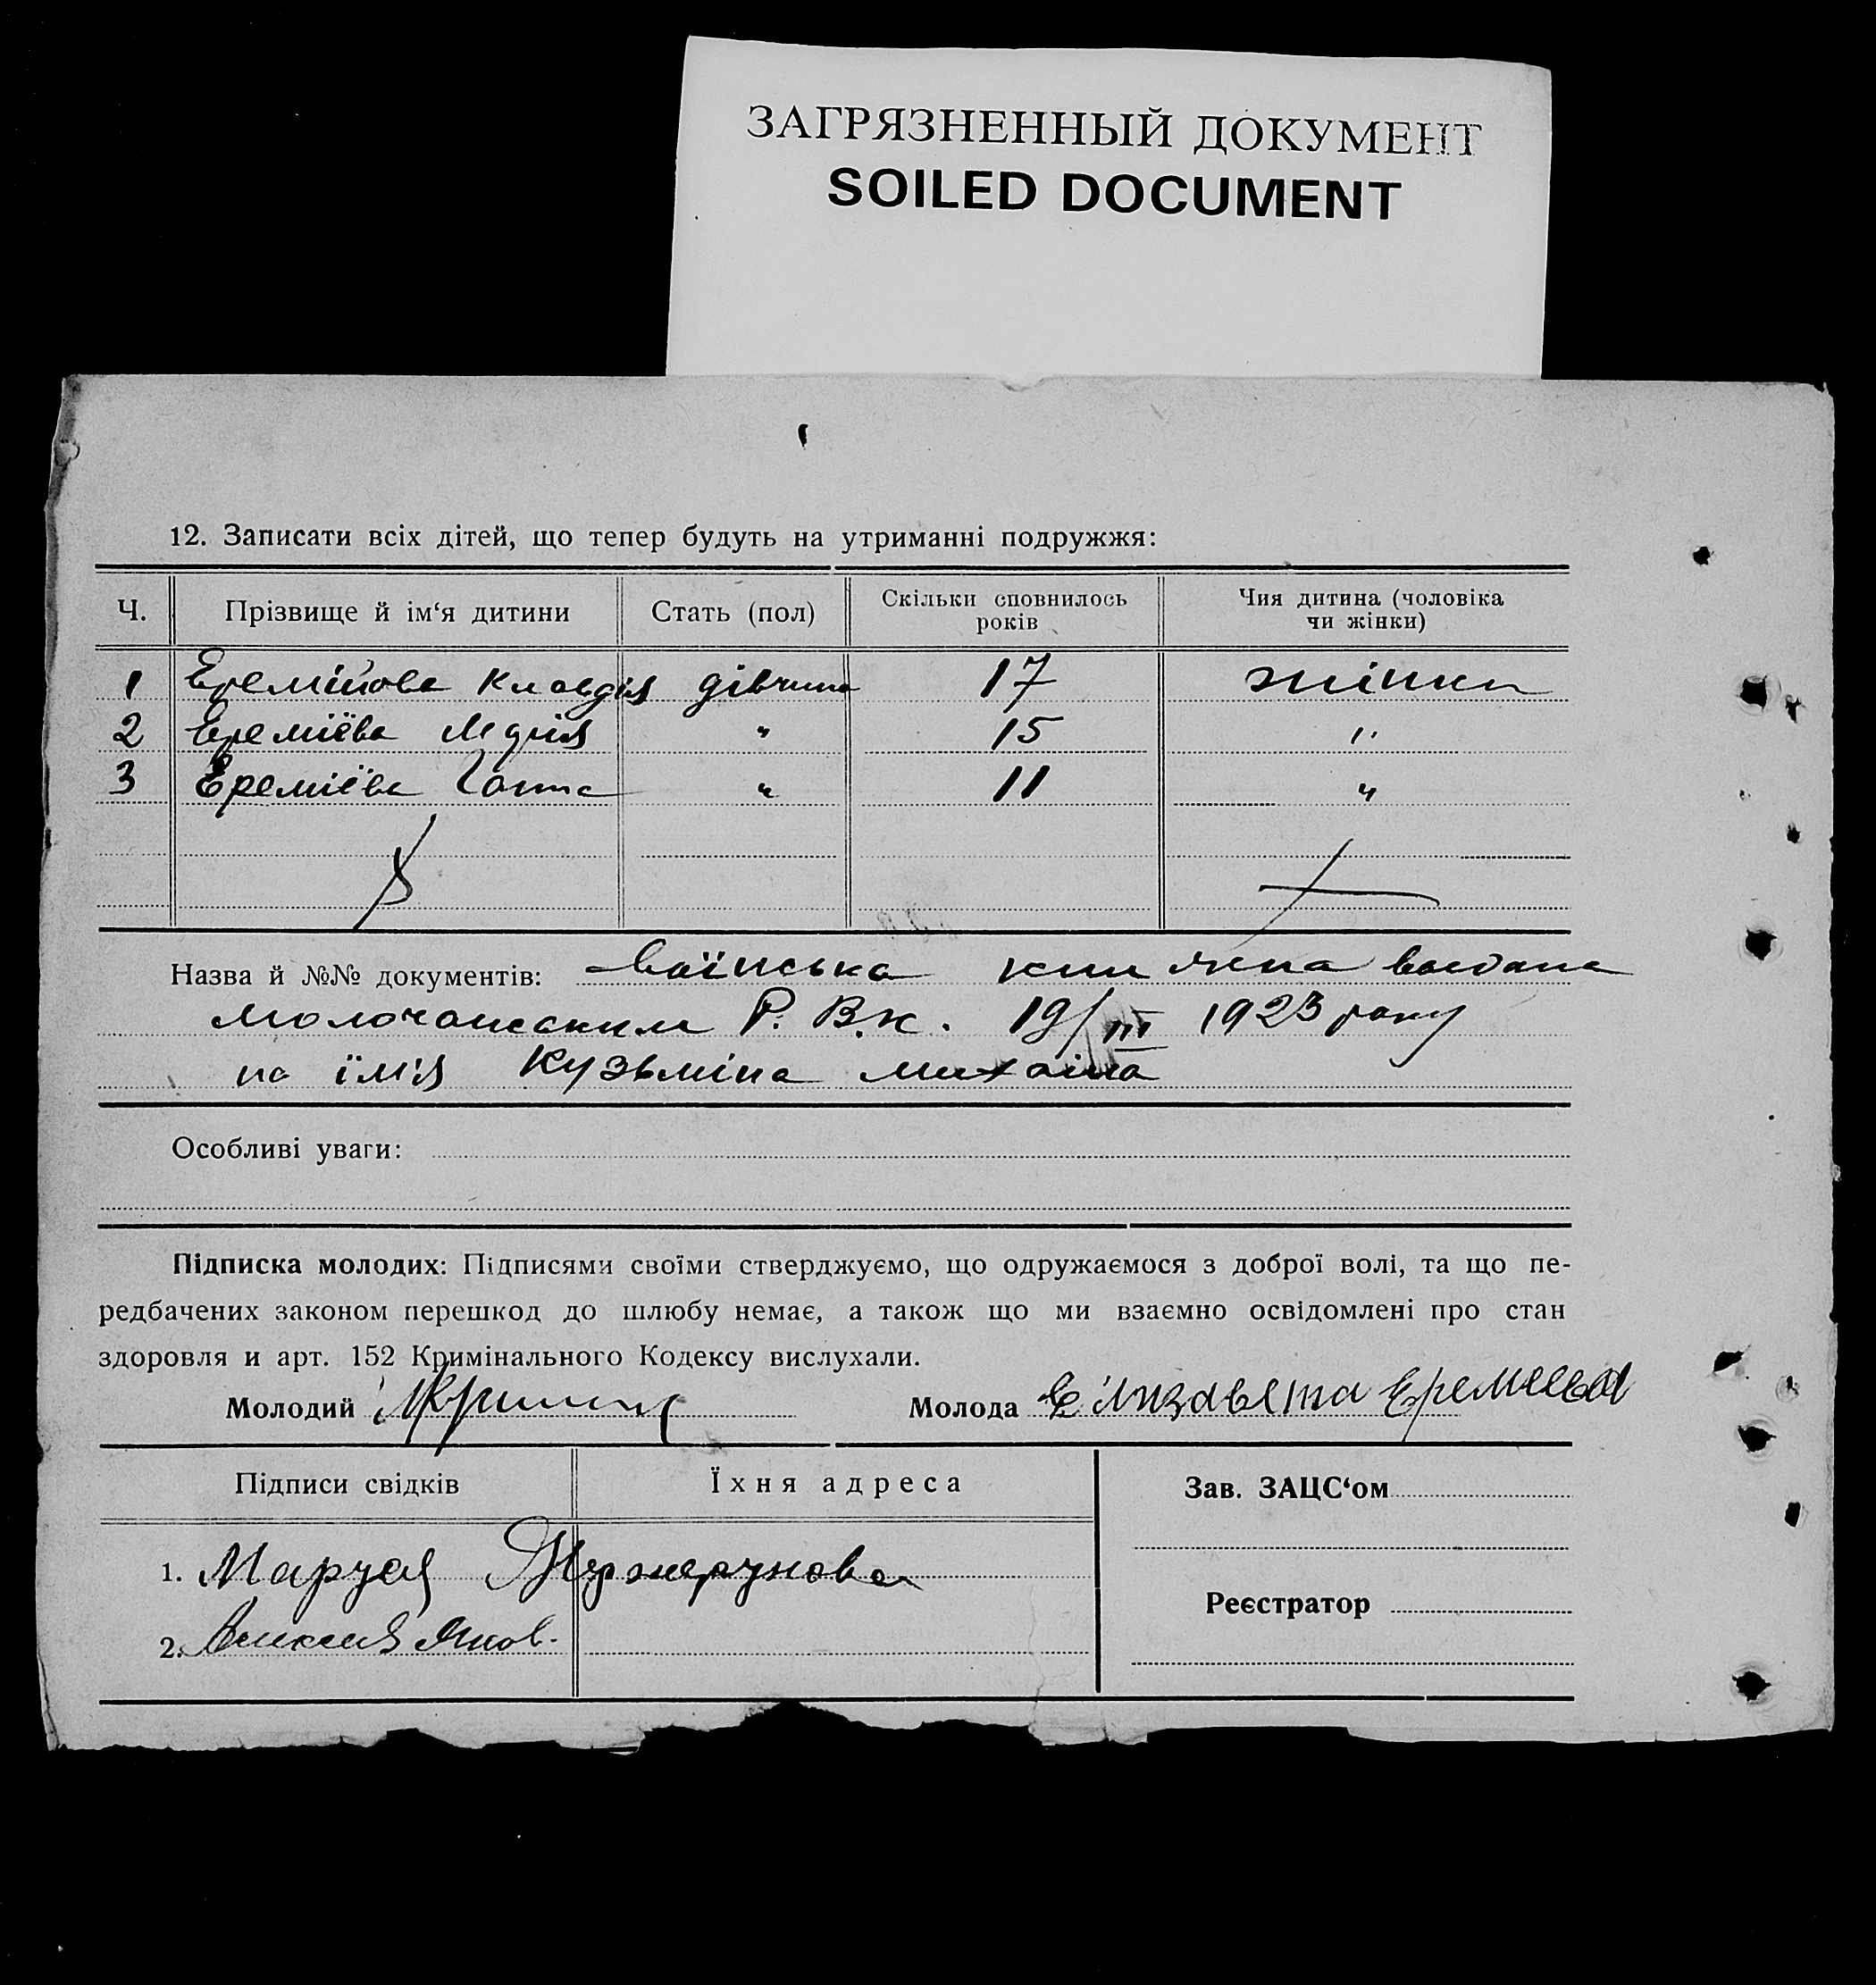 ЗАГРЯЗНЕННЫЙ ДОКУМЕНТ
SOILED DOCUMENT
12. Записати всіх дітей, що тепер будуть на утриманні подружжя:
Ч. Прізвище й ім‘я дитини Стать (пол) Скільки сповнилось років Чия дитина (чоловіка чи жінки)
1 Еремійова Клавдія дівчина 17 жінки
2 Ереміёва " 15 "
3 Ереміёва " 11 "
Назва й №№ документів: воїнська
Р. В. К. 19/III 1923 року
на їм'я Кузьміна Михаіла
Особливі уваги:
Підписка молодих: Підписями своїми стверджуємо, що одружаємося з доброї волі, та що пе-
редбачених законом перешкод до шлюбу немає, а також що ми взаємно освідомлені про стан
здоровля и арт. 152 Кримінального Кодексу вислухали.
Молодий Молода Елизавета Еремеева
Підписи свідків Їхня адреса Зав. ЗАЦС‘ом
1. Маруся
Реєстратор
2.